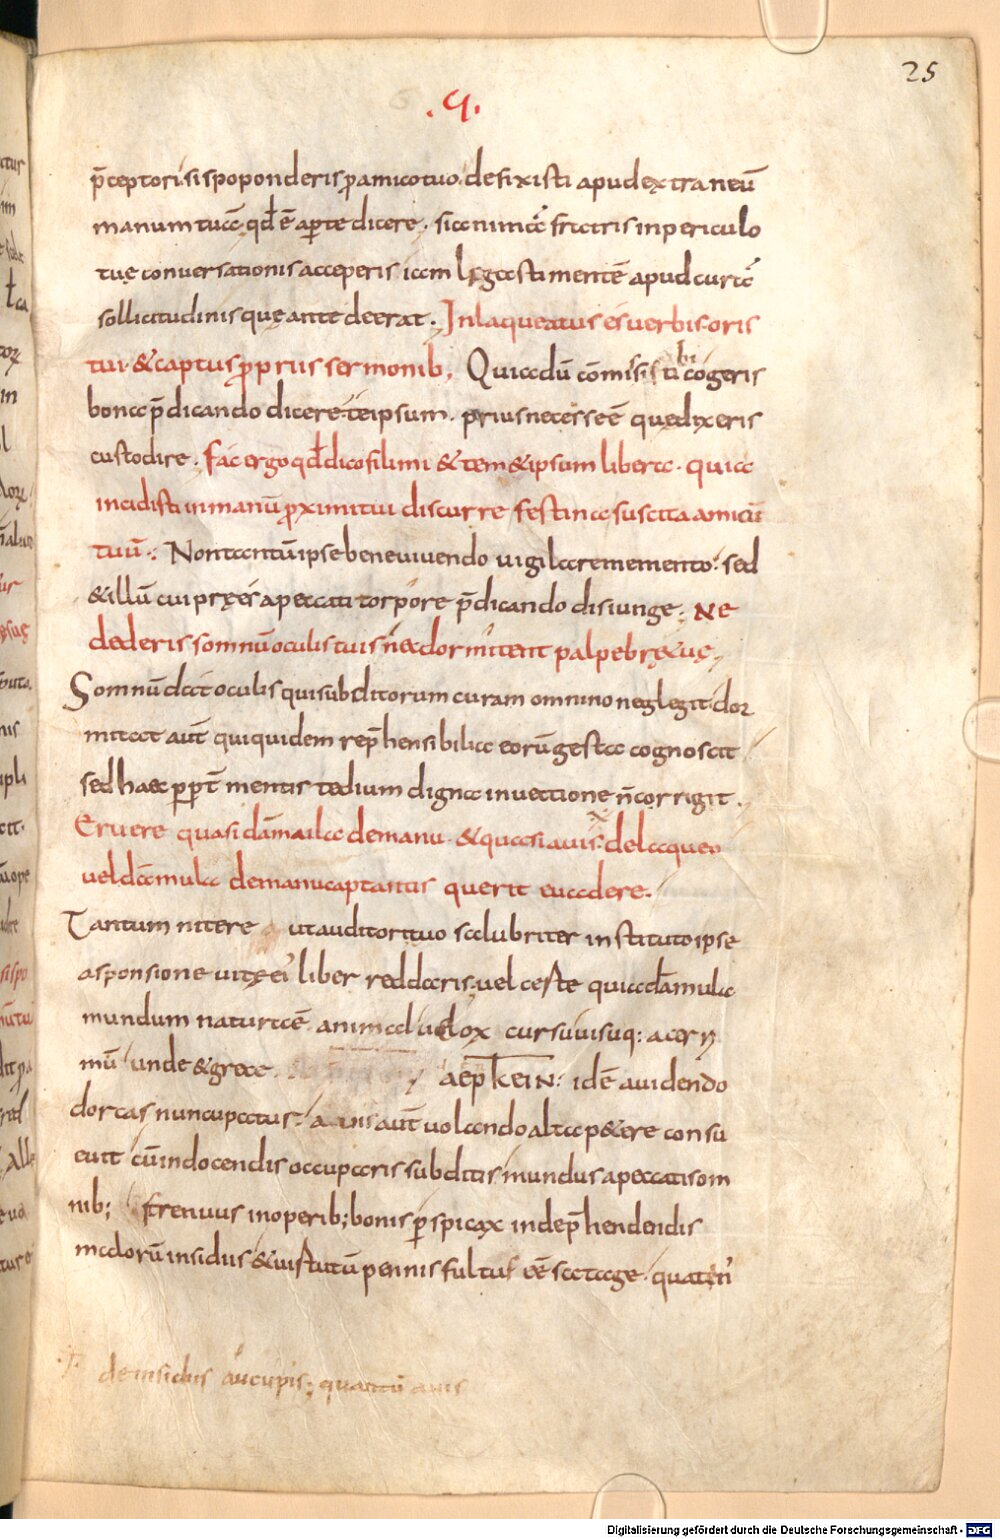 25
.q.
p̄ceptorisi spoponderis ꝓamico tuo. defixisti apud extraneū
manum tuā qđ ē aꝑte dicere. sic animā fratris in periculo
tuę conversationis acceperis iam ligasti mentē apud curā
sollicitudinis quę ante deerat. Inlaqueatus es verbis oris
tui & captus ꝓpriis sermonib; Quia dū cōmisis tibi cogeris
bona p̄dicando dicere. te ipsum. prius necesse ē que dixeris
custodire. fac ergo qđ dico fili mi & tem&ipsum libera. quia
incidisti in manū ꝓximi tui discurre festina suscita amicū
tuū: Non tantū ipse bene vivendo vigilare memento. sed
& illū cui pręes a peccati torpore p̄dicando disiunge: Ne
dederis somnū oculis tuis nec dormitent palpebrę tuę,
Somnū dat oculis qui subditorum curam omnino neglegit. dor
mitat aūt qui quidem rep̄hensibilia eorū gesta cognoscit
sed haec ꝓpt̄ mentis tedium digna invectione n̄ corrigit.
Eruere quasi dāmula de manu. & quasi avis de laqueo
vel dāmula de manu captantis querit evadere.
Tantum nitere ut auditori tuo salubriter instituto ipse
a sponsione vitę ei' liber reddaris. vel certe quia dāmula
mundum naturā animal velox cursu visuq: acerri
mū unde & grece. aepkeιN: id ē a videndo
dorcas nuncupatus. avis aūt volando alta p&ere consu
evit cū in docendis occuparis subditis mundus a peccatis om
nib; strenuus in operib; bonis ꝑspicax in dep̄hendendis
malorū insidiis & virtutū pennis fultus eē satage. quaten'
de insidiis aucupis; quantū avis
Digitalisierung gefördert durch die Deutsche Forschungsgemeinschaft - DFG